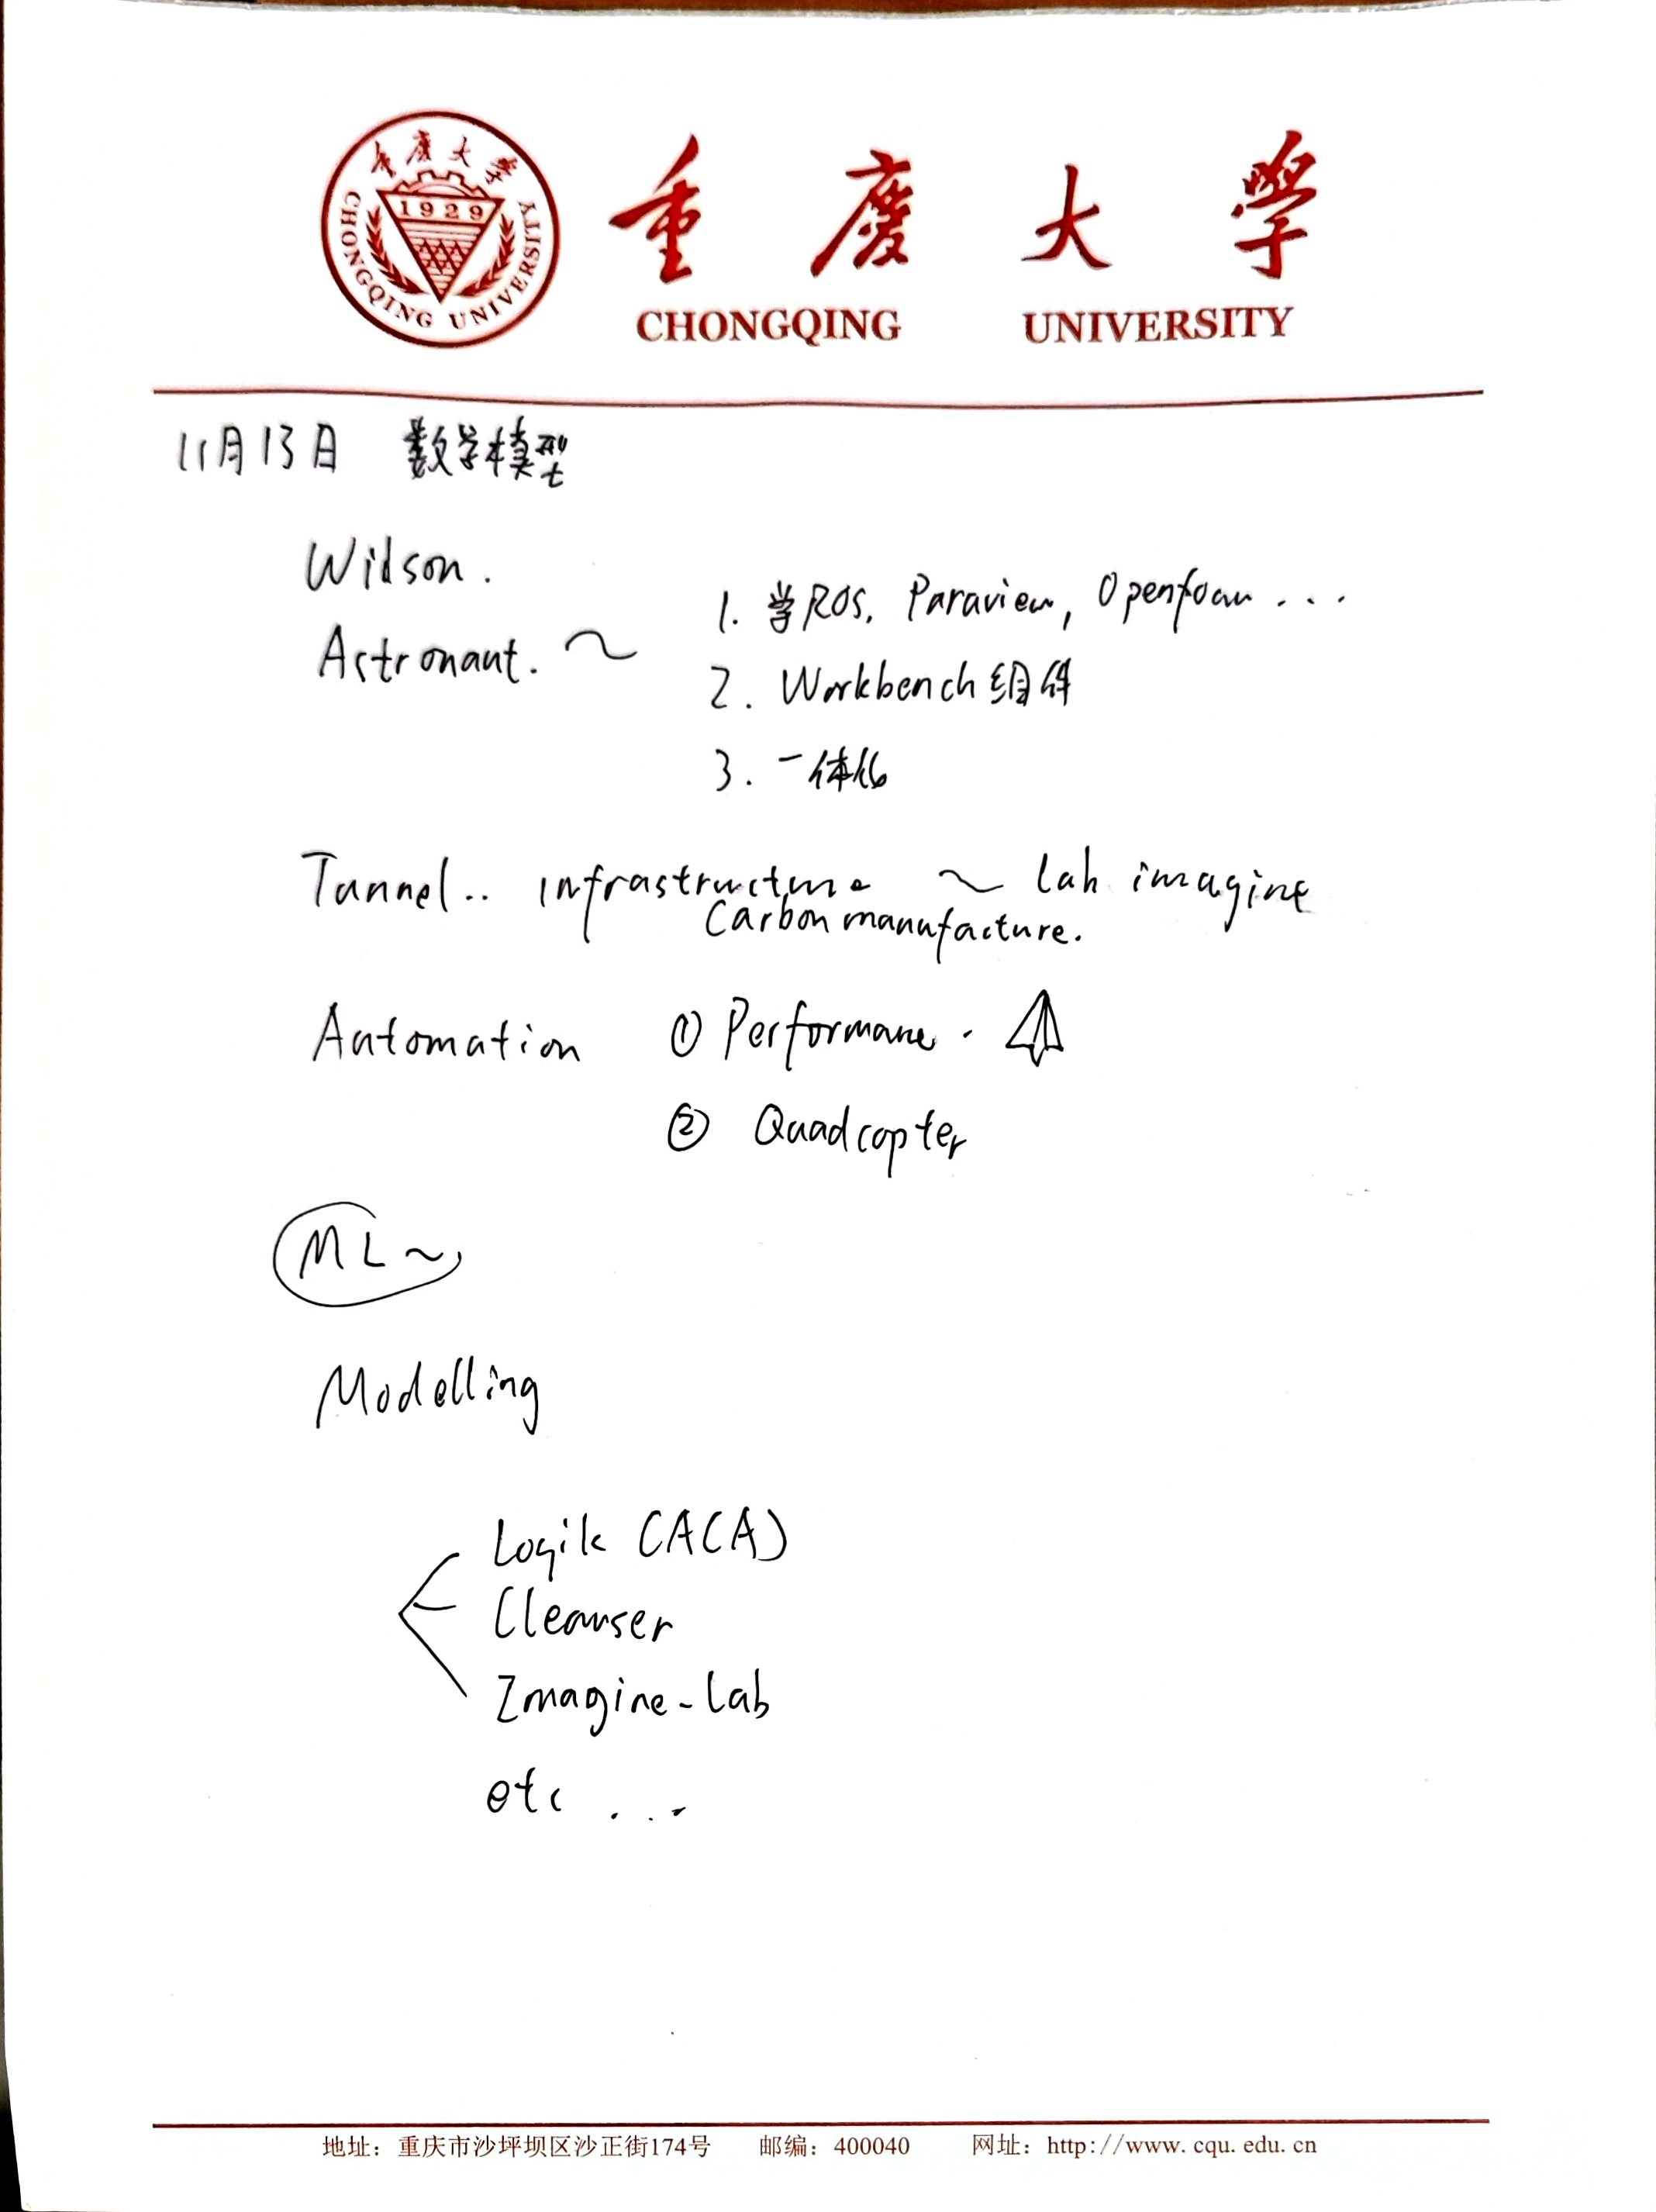 重慶大學
1929
CHONGQING UNIVERSITY
重慶大學
CHONGQING UNIVERSITY
11月13日 数学模型
Wilson.
Astronaut. ~
1. 学ROS, Paraview, Openfoam ...
2. Workbench 组件
3. 一体化
Tunnel.. infrastructure ~ lab imagine
Carbon manufacture.
Automation ① Performane.
② Quadcopter
ML~
Modelling
Logik CACA)
Cleanser
Imagine-lab
etc ...
地址：重庆市沙坪坝区沙正街174号 邮编：400040 网址：http://www.cqu.edu.cn